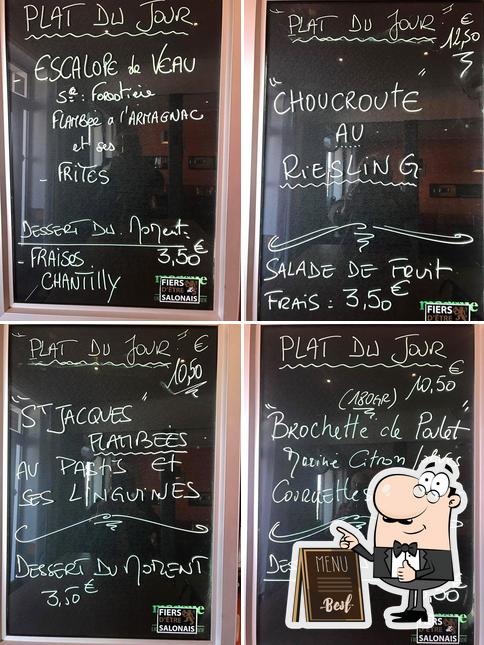 PLAT DU JOUR
ESCALOPE de VEAU
Sce : Forestière
FLAMBÉE a l'ARMAGNAC
et ses :
- FRITES
DESSERT DU MOMENT.
- FRAISES 3,50€
CHANTILLY
FIERS
D'ÊTRE
SALONAIS
PLAT DU JOUR : €
12,50
"CHOUCROUTE"
AU
RIESLING
SALADE DE FRUIT
FRAIS : 3,50€
FIERS
D'ÊTRE
SALONAIS
PLAT DU JOUR : €
10,50
"ST JACQUES
FLAMBÉES
AU PASTIS ET
SES LINGUINES
DESSERT DU MOMENT
3,50€
FIERS
D'ÊTRE
SALONAIS
PLAT DU JOUR
10,50€
(180GR)
"Brochette de Poulet
Mariné Citron
Courgettes
MENU
Best
FIERS
D'ÊTRE
SALONAIS